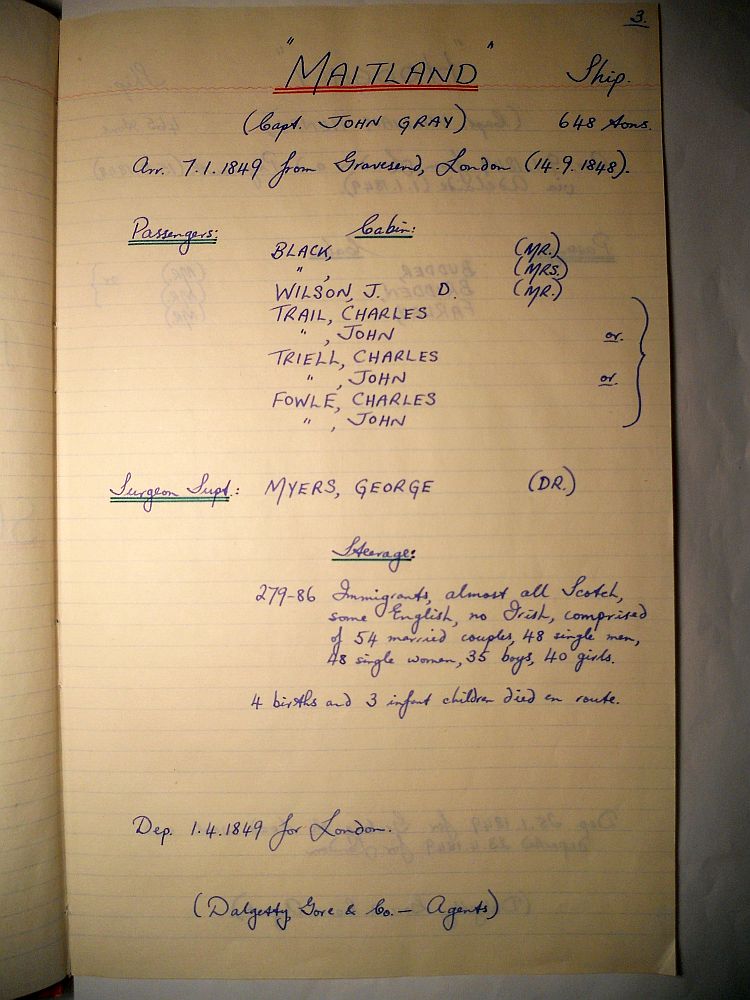 3.
"MAITLAND" Ship.
(Capt. JOHN GRAY) 648 tons.
Arr. 7.1.1849 from Gravesend, London (14.9.1848).
Passengers: Cabin:
BLACK, (MR.)
" , (MRS.)
WILSON, J. D. (MR.)
TRAIL, CHARLES
" , JOHN or.
TRIELL, CHARLES
" , JOHN or.
FOWLE, CHARLES
" , JOHN
Surgeon Supt.: MYERS, GEORGE (DR.)
Steerage:
279-86 Immigrants, almost all Scotch,
some English, no Irish, comprised
of 54 married couples, 48 single men,
48 single women, 35 boys, 40 girls.
4 births and 3 infant children died en route.
Dep. 1.4.1849 for London.
(Dalgetty, Gore & Co. — Agents)